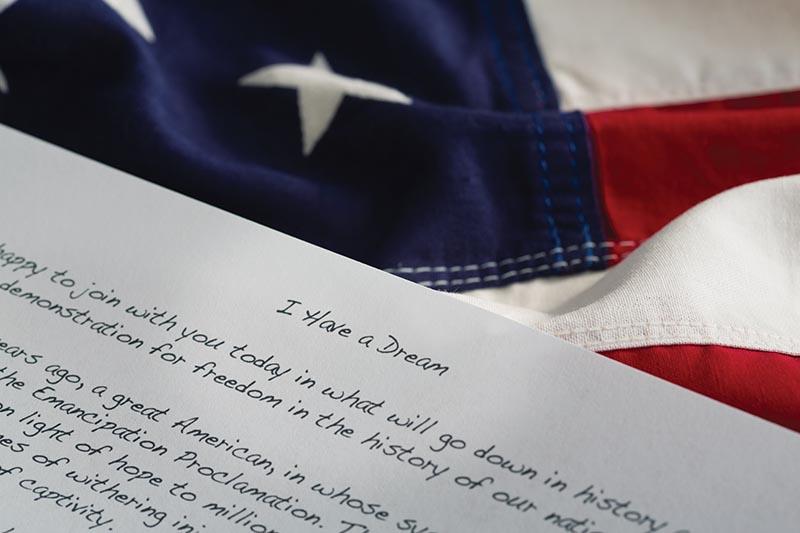 I Have a Dream
happy to join with you today in what will go down in history
demonstration for freedom in the history of our
years ago, a great American, in whose
the Emancipation Proclamation.
light of hope to
of withering
of captivity.